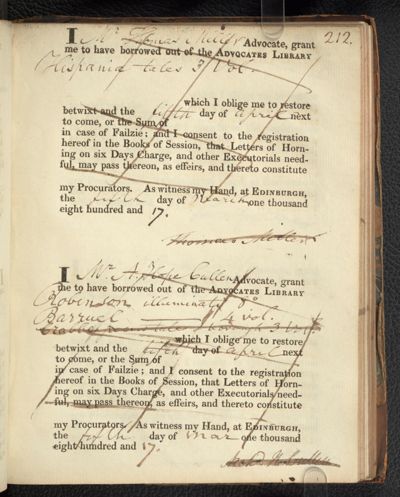 212.
I Mr. Thomas Miller Advocate, grant
me to have borrowed out of the ADVOCATES LIBRARY
tales 3 Vol.
which I oblige me to restore
betwixt and the fifth day of April next
to come, or the Sum of
in case of Failzie; and I consent to the registration
hereof in the Books of Session, that Letters of Horn-
ing on six Days Charge, and other Executorials need-
ful, may pass thereon, as effeirs, and thereto constitute
my Procurators. As witness my Hand, at EDINBURGH,
the fifth day of March one thousand
eight hundred and 17.
Thomas Miller
I Mr. A. Hope Cullen Advocate, grant
me to have borrowed out of the ADVOCATES LIBRARY
Robinson illuminati 8°
Barruel 4 vol.
3 Vol.
which I oblige me to restore
betwixt and the fifth day of April next
to come, or the Sum of
in case of Failzie; and I consent to the registration
hereof in the Books of Session, that Letters of Horn-
ing on six Days Charge, and other Executorials need-
ful, may pass thereon, as effeirs, and thereto constitute
my Procurators. As witness my Hand, at EDINBURGH,
the fifth day of Mar one thousand
eight hundred and 17.